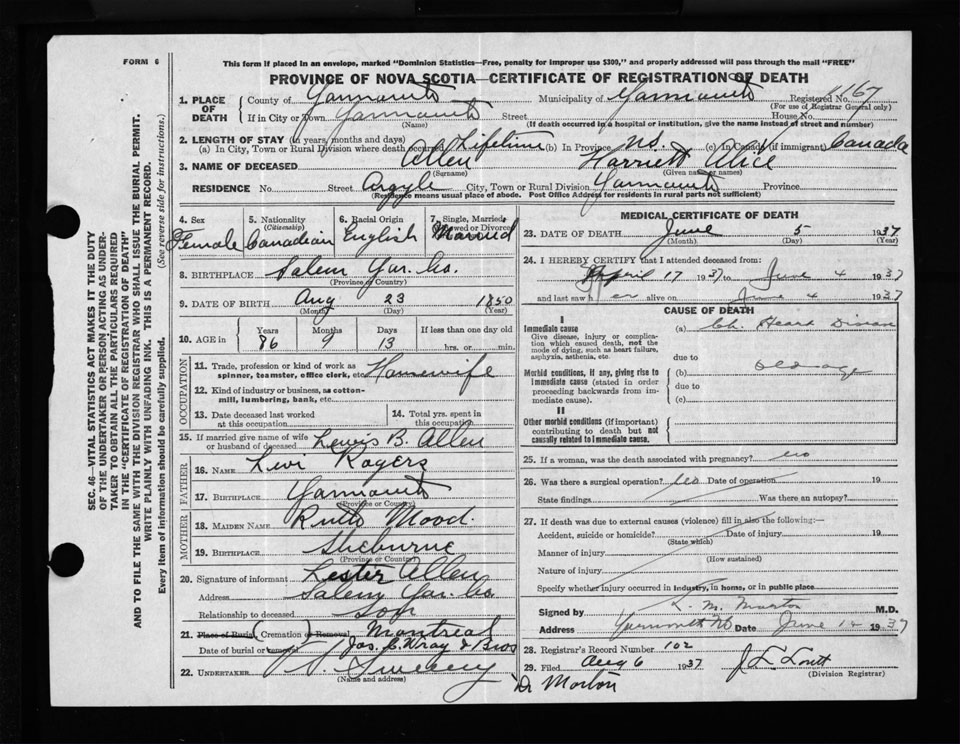 FORM 6
This form if placed in an envelope, marked "Dominion Statistics—Free, penalty for improper use $300," and properly addressed will pass through the mail "FREE"
PROVINCE OF NOVA SCOTIA—CERTIFICATE OF REGISTRATION OF DEATH
1. PLACE OF DEATH
County of Yarmouth Municipality of Yarmouth Registered No. 167
(For use of Registrar General only)
If in City or Town Yarmouth Street House No.
(Name) (If death occurred in a hospital or institution, give the name instead of street and number)
2. LENGTH OF STAY (in years, months and days)
(a) In City, Town or Rural Division where death occurred Lifetime (b) In Province N.S. (c) In Canada (if immigrant) Canada
3. NAME OF DECEASED Allen Harriett Alice
(Surname) (Given name or names)
RESIDENCE No. Street Argyle City, Town or Rural Division Yarmouth Province
(Residence means usual place of abode. Post Office Address for residents in rural parts not sufficient)
4. Sex Female
5. Nationality (Citizenship) Canadian
6. Racial Origin English
7. Single, Married, Widowed or Divorced Married
8. BIRTHPLACE Salem Yar. Co.
(Province or Country)
9. DATE OF BIRTH Aug 23 1850
(Month) (Day) (Year)
10. AGE in Years Months Days If less than one day old
86 9 13 hrs. or min.
OCCUPATION
11. Trade, profession or kind of work as spinner, teamster, office clerk, etc. Housewife
12. Kind of industry or business, as cotton-mill, lumbering, bank, etc.
13. Date deceased last worked at this occupation
14. Total yrs. spent in this occupation
15. If married give name of wife or husband of deceased Lewis B. Allen
FATHER
16. NAME Levi Rogers
17. BIRTHPLACE Yarmouth
(Province or Country)
MOTHER
18. MAIDEN NAME Ruth Mood.
19. BIRTHPLACE Shelburne
(Province or Country)
20. Signature of informant Lester Allen
Address Salem Yar. Co.
Relationship to deceased Son
21. Place of Burial (Cremation) or Removal Montreal
Date of burial or removal Jos. C. Wray & Bros
22. UNDERTAKER V. Sweeny
(Name and address)
MEDICAL CERTIFICATE OF DEATH
23. DATE OF DEATH June 5 1937
(Month) (Day) (Year)
24. I HEREBY CERTIFY that I attended deceased from:
April 17 1937 to June 4 1937
and last saw her alive on June 4 1937
CAUSE OF DEATH
I
Immediate cause
Give disease, injury or complication which caused death, not the mode of dying, such as heart failure, asphyxia, asthenia, etc.
(a) Ch. Heart Disease
due to
Morbid conditions, if any, giving rise to immediate cause (stated in order proceeding backwards from immediate cause).
(b) old age
due to
(c)
II
Other morbid conditions (if important) contributing to death but not causally related to immediate cause.
25. If a woman, was the death associated with pregnancy? no
26. Was there a surgical operation? no Date of operation 19
State findings Was there an autopsy?
27. If death was due to external causes (violence) fill in also the following:—
Accident, suicide or homicide? Date of injury 19
(State which)
Manner of injury
(How sustained)
Nature of injury
Specify whether injury occurred in industry, in home, or in public place
Signed by L. M. Morton M.D.
Address Yarmouth NS Date June 12 1937
28. Registrar's Record Number 102
29. Filed Aug 6 1937 J L Lovitt
(Division Registrar)
Dr Morton
SEC. 46—VITAL STATISTICS ACT MAKES IT THE DUTY
OF THE UNDERTAKER OR PERSON ACTING AS UNDER-
TAKER TO OBTAIN ALL THE PARTICULARS REQUIRED
IN THE "CERTIFICATE OF REGISTRATION OF DEATH"
AND TO FILE THE SAME WITH THE DIVISION REGISTRAR WHO SHALL ISSUE THE BURIAL PERMIT.
WRITE PLAINLY WITH UNFADING INK. THIS IS A PERMANENT RECORD.
Every item of information should be carefully supplied. (See reverse side for instructions.)